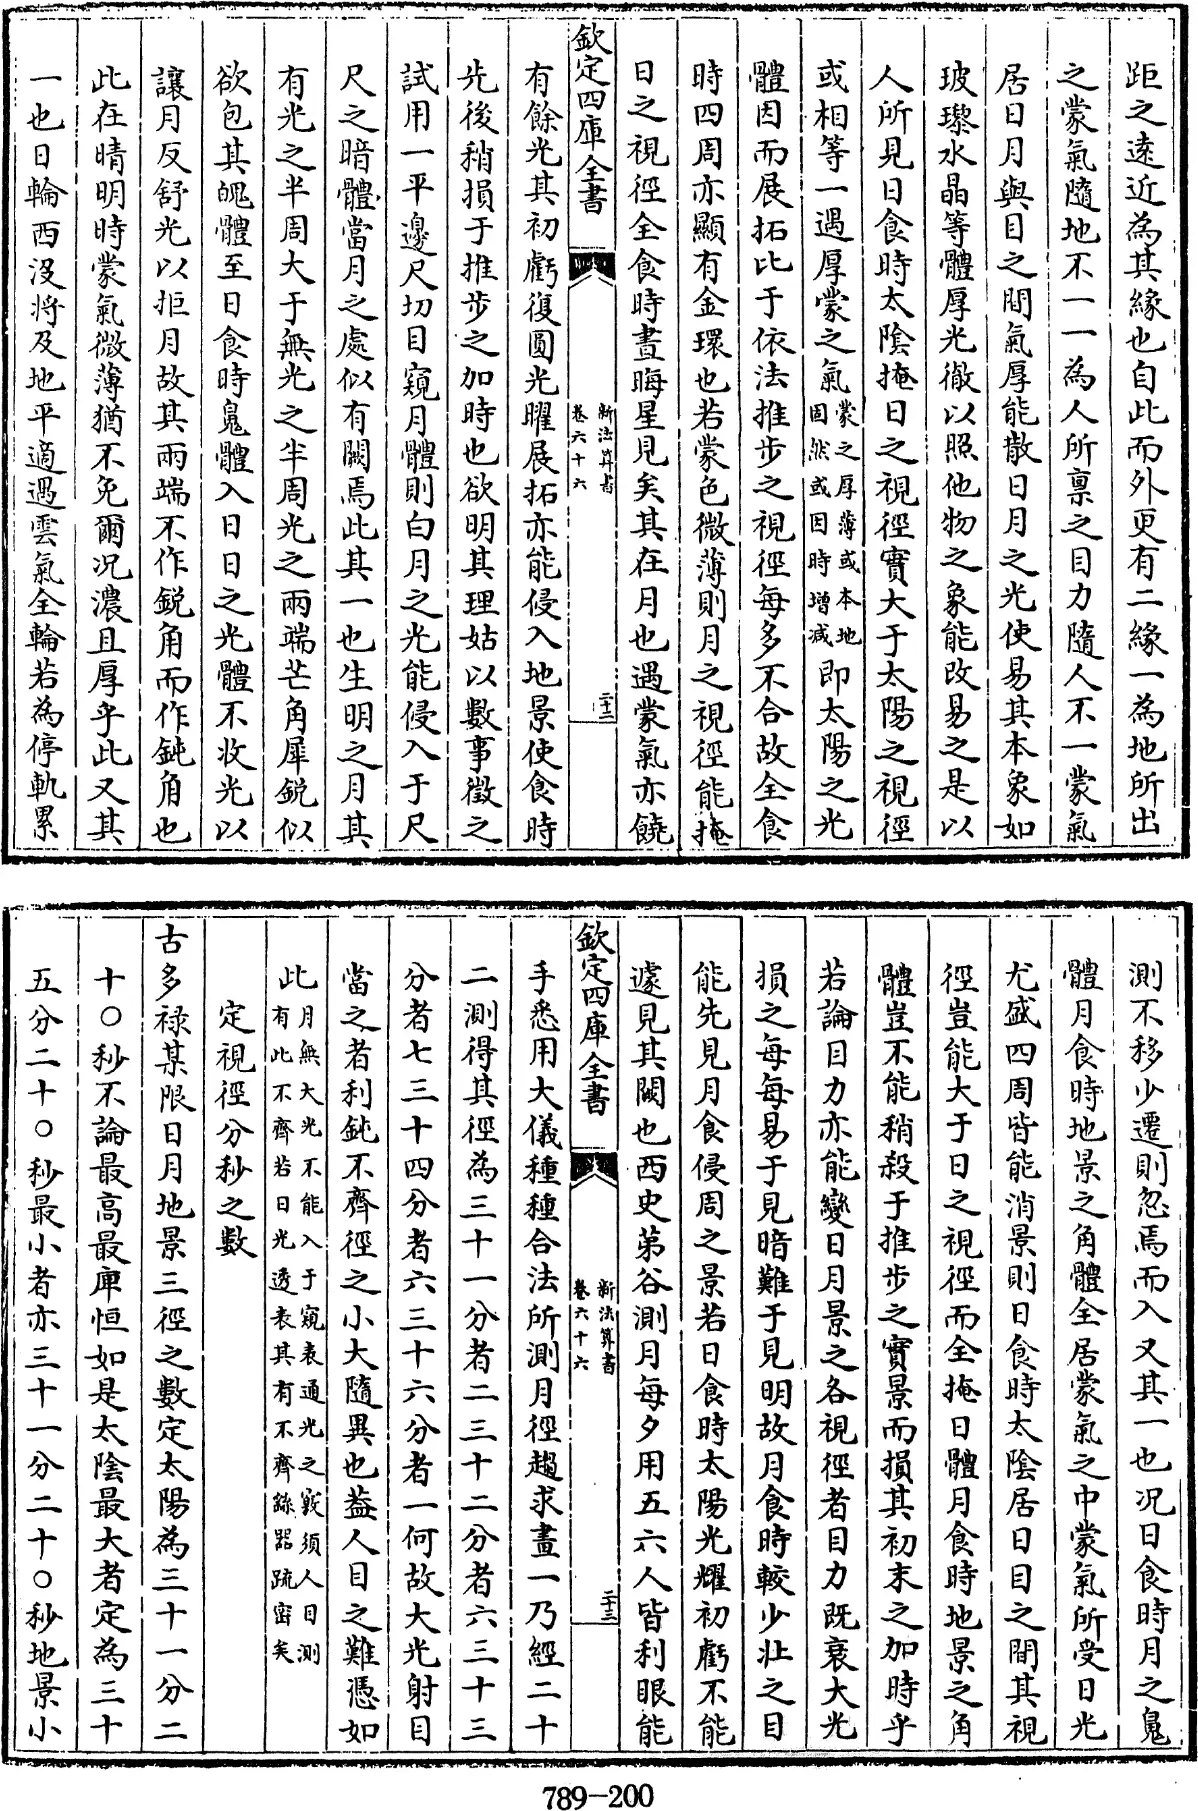 距之遠近為其緣也自此而外更有二緣一為地所出
之蒙氣隨地不一一為人所禀之目力隨人不一蒙氣
居日月與目之間氣厚能散日月之光使易其本象如
玻瓈水晶等體厚光徹以照他物之象能改易之是以
人所見日食時太陰掩日之視徑實大于太陽之視徑
或相等一遇厚蒙之氣蒙之厚薄或本地固然或因時增減即太陽之光
體因而展拓比于依法推步之視徑每多不合故全食
時四周亦顯有金環也若蒙色微薄則月之視徑能掩
日之視徑全食時晝晦星見矣其在月也遇蒙氣亦饒
欽定四庫全書
新法算書
卷六十六
二十二
有餘光其初虧復圓光曜展拓亦能侵入地景使食時
先後稍損于推步之加時也欲明其理姑以數事徵之
試用一平邊尺切目窺月體則白月之光能侵入于尺
尺之暗體當月之處似有闕焉此其一也生明之月其
有光之半周大于無光之半周光之兩端芒角犀銳似
欲包其魄體至日食時鬼體入日日之光體不收光以
讓月反舒光以拒月故其兩端不作銳角而作鈍角也
此在晴明時蒙氣微薄猶不免爾况濃且厚乎此又其
一也日輪西沒將及地平適遇雲氣全輪若為停軌累
測不移少遷則忽焉而入又其一也况日食時月之鬼
體月食時地景之角體全居蒙氣之中蒙氣所受日光
尤盛四周皆能消景則日食時太陰居日目之間其視
徑豈能大于日之視徑而全掩日體月食時地景之角
體豈不能稍殺于推步之實景而損其初末之加時乎
若論目力亦能變日月景之各視徑者目力既衰大光
損之每每易于見暗難于見明故月食時較少壯之目
能先見月食侵周之景若日食時太陽光耀初虧不能
遽見其闕也西史第谷測月每夕用五六人皆利眼能
欽定四庫全書
新法算書
卷六十六
二十三
手悉用大儀種種合法所測月徑趨求畫一乃經二十
二測得其徑為三十一分者二三十二分者六三十三
分者七三十四分者六三十六分者一何故大光射目
當之者利鈍不齊徑之小大隨異也葢人目之難憑如
此月無大光不能入于窺表通光之竅須人目測有此不齊若日光透表其有不齊繇器疏密矣
定視徑分秒之數
古多祿某限日月地景三徑之數定太陽為三十一分二
十〇秒不論最高最庳恒如是太陰最大者定為三十
五分二十〇秒最小者亦三十一分二十〇秒地景小
789-200